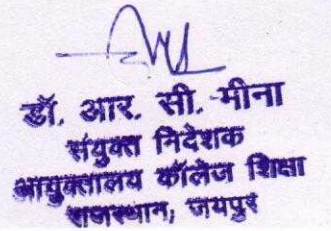 डॉ. आर. सी. मीना
संयुक्त निदेशक
आयुक्तालय कॉलेज शिक्षा
राजस्थान, जयपुर